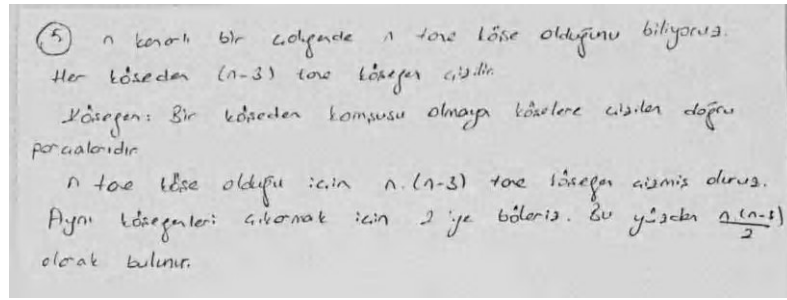 5 n kenarlı bir çokgende n tane köşe olduğunu biliyoruz.
Her köşeden (n-3) tane köşegen çizilir.
Köşegen: Bir köşeden komşusu olmayan köşelere çizilen doğru
parçalarıdır
n tane köşe olduğu için n.(n-3) tane köşegen çizmiş oluruz.
Aynı köşegenleri çıkarmak için 2'ye böleriz. Bu yüzden n.(n-3)/2
olarak bulunur.